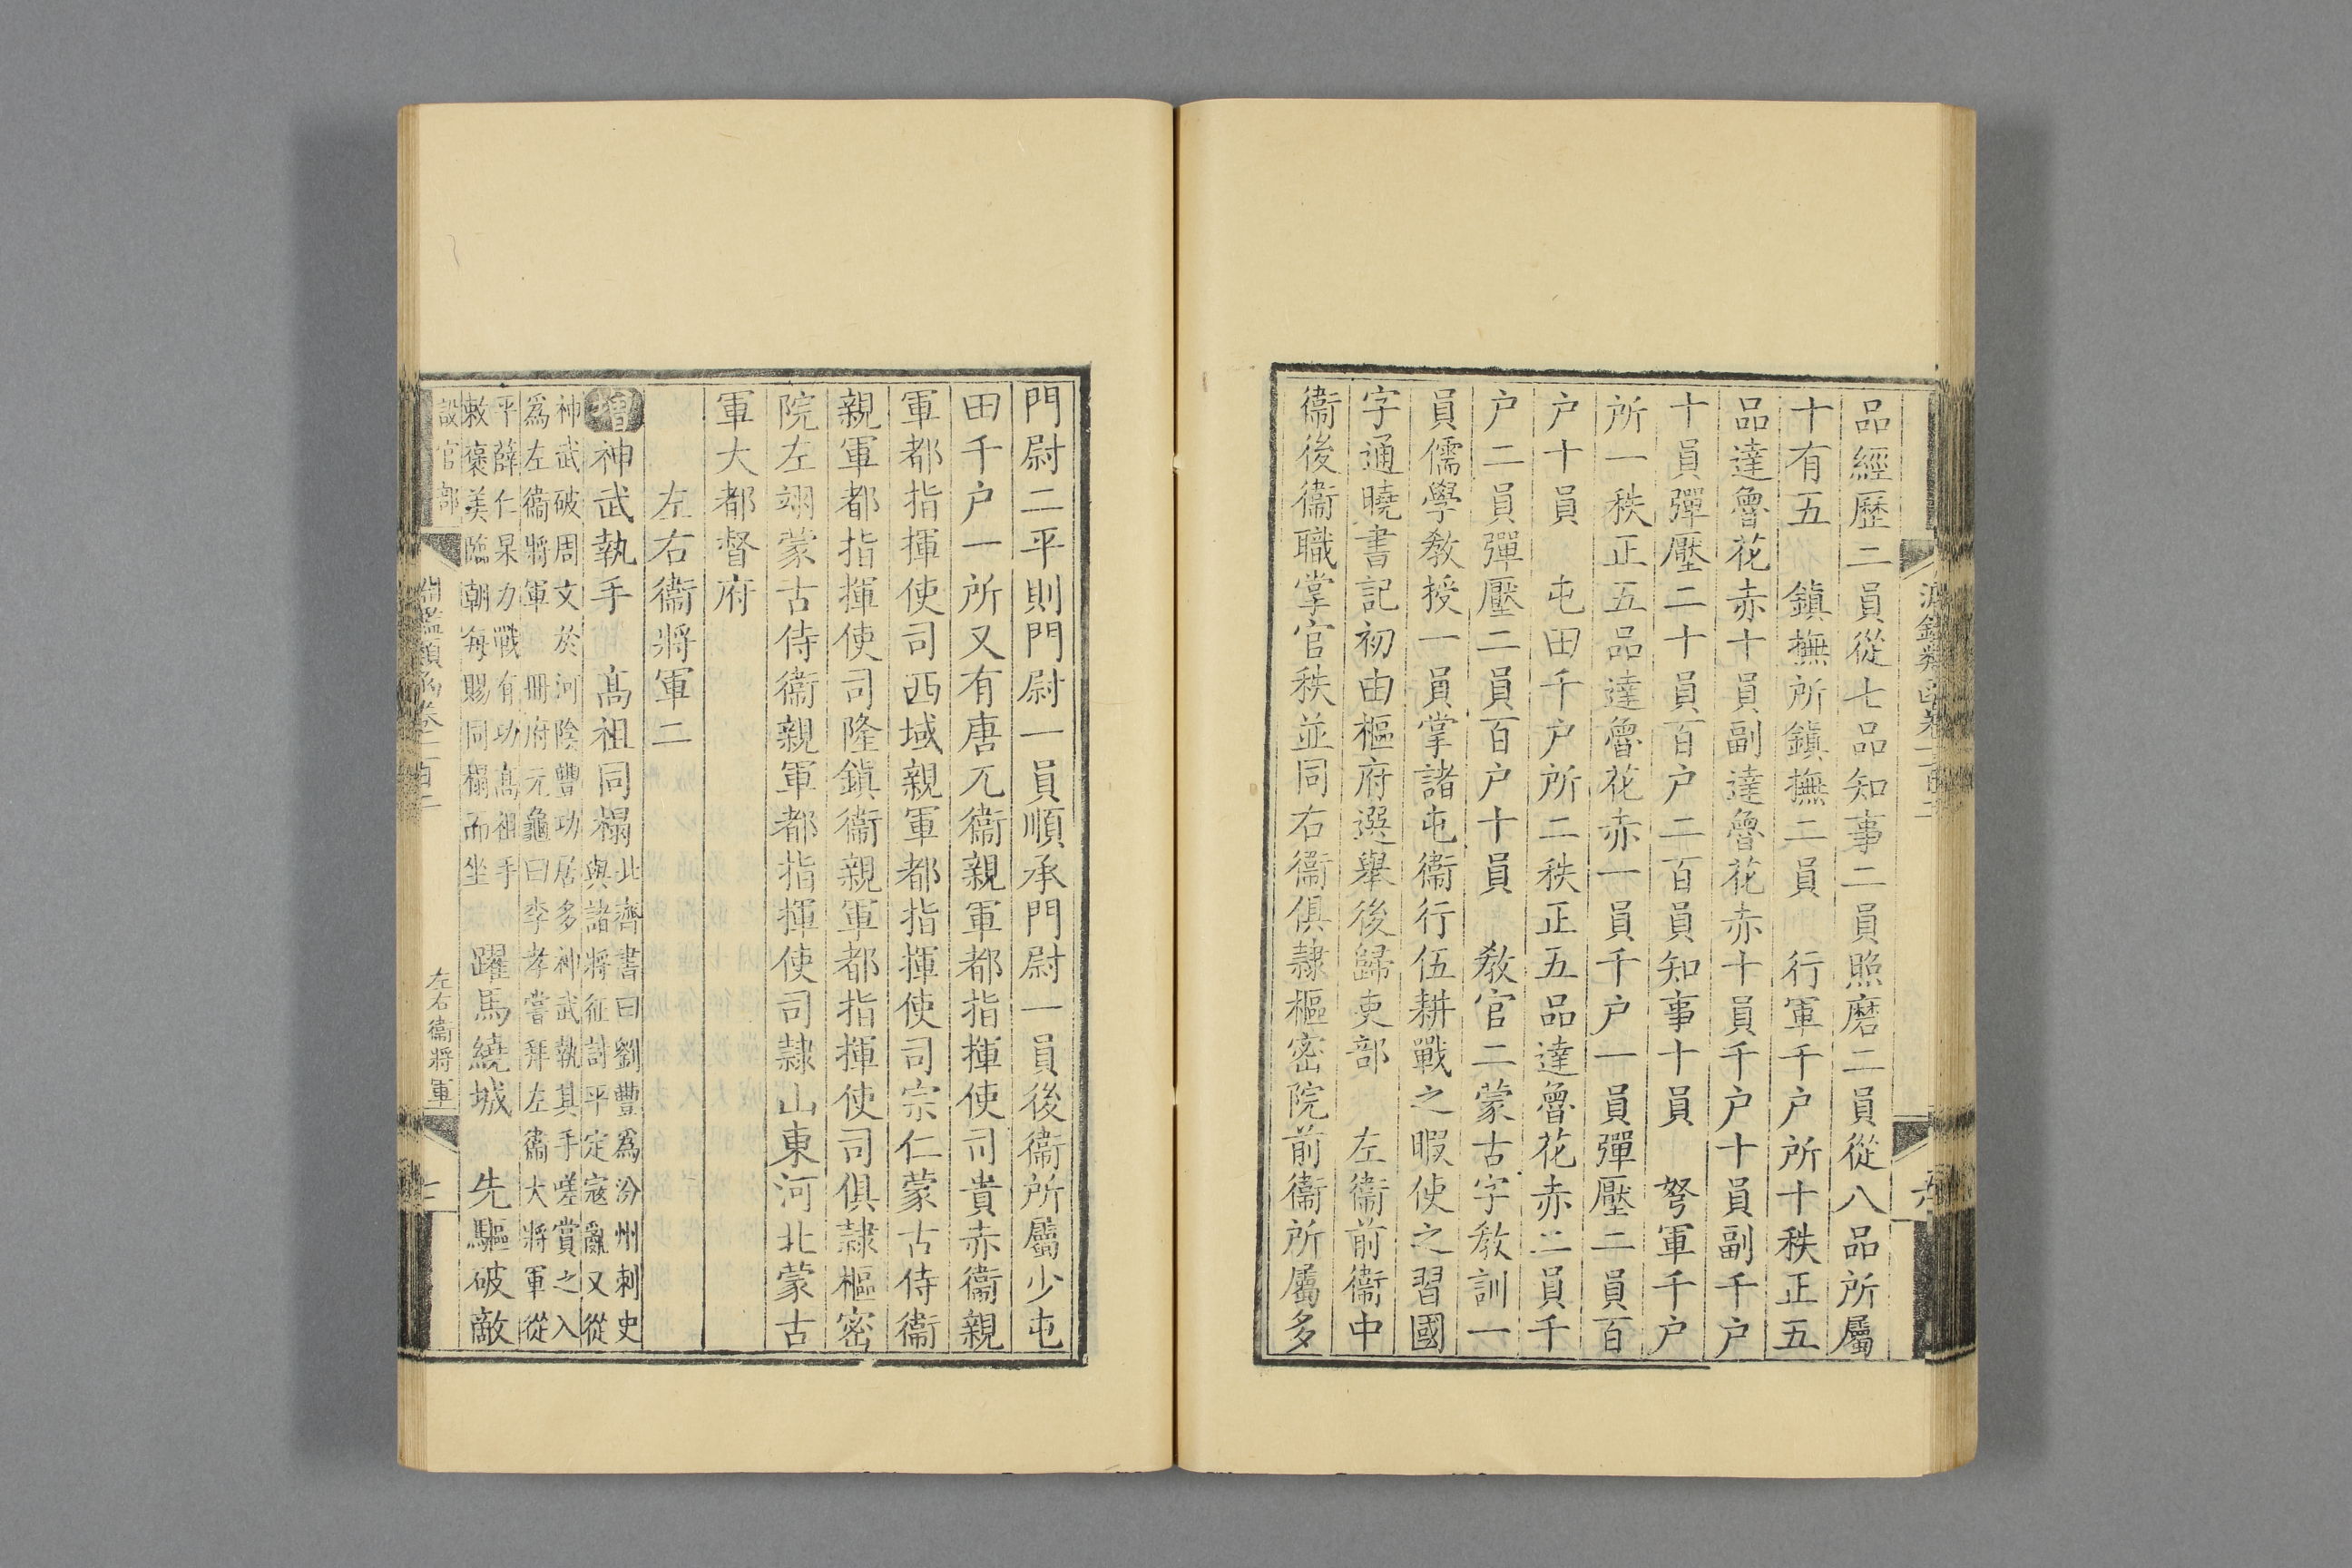 品經歷二員從七品知事二員照磨二員從八品所屬
十有五　鎮撫所鎮撫二員　行軍千户所十秩正五
品達魯花赤十員副達魯花赤十員千户十員副千户
十員彈壓二十員百户二百員知事十員　弩軍千户
所一秩正五品達魯花赤一員千户一員彈壓二員百
户十員　屯田千户所二秩正五品達魯花赤二員千
户二員彈壓二員百户十員　教官二蒙古字教訓一
員儒學教授一員掌諸屯衞行伍耕戰之暇使之習國
字通曉書記初由樞府選舉後歸吏部　左衞前衞中
衞後衞職掌官秩並同右衞俱隷樞密院前衞所屬多
門尉二平則門尉一員順承門尉一員後衞所屬少屯
田千户一所又有唐兀衞親軍都指揮使司貴赤衞親
軍都指揮使司西域親軍都指揮使司宗仁蒙古侍衞
親軍都指揮使司隆鎮衞親軍都指揮使司俱隷樞密
院左翊蒙古侍衞親軍都指揮使司隷山東河北蒙古
軍大都督府
左右衞將軍二
增神武執手　髙祖同榻
北齊書曰劉豐爲汾州刺史
與諸將征討平定寇亂又從
神武破周文於河陰豐功居多神武執其手嗟賞之入
爲左衞將軍　冊府元龜曰李孝嘗拜左衞大將軍從
平薛仁杲力戰有功髙祖手
敕褒美臨朝每賜同榻而坐
躍馬繞城　先驅破敵
設官部
淵鑑類函卷一百二
左右衞將軍